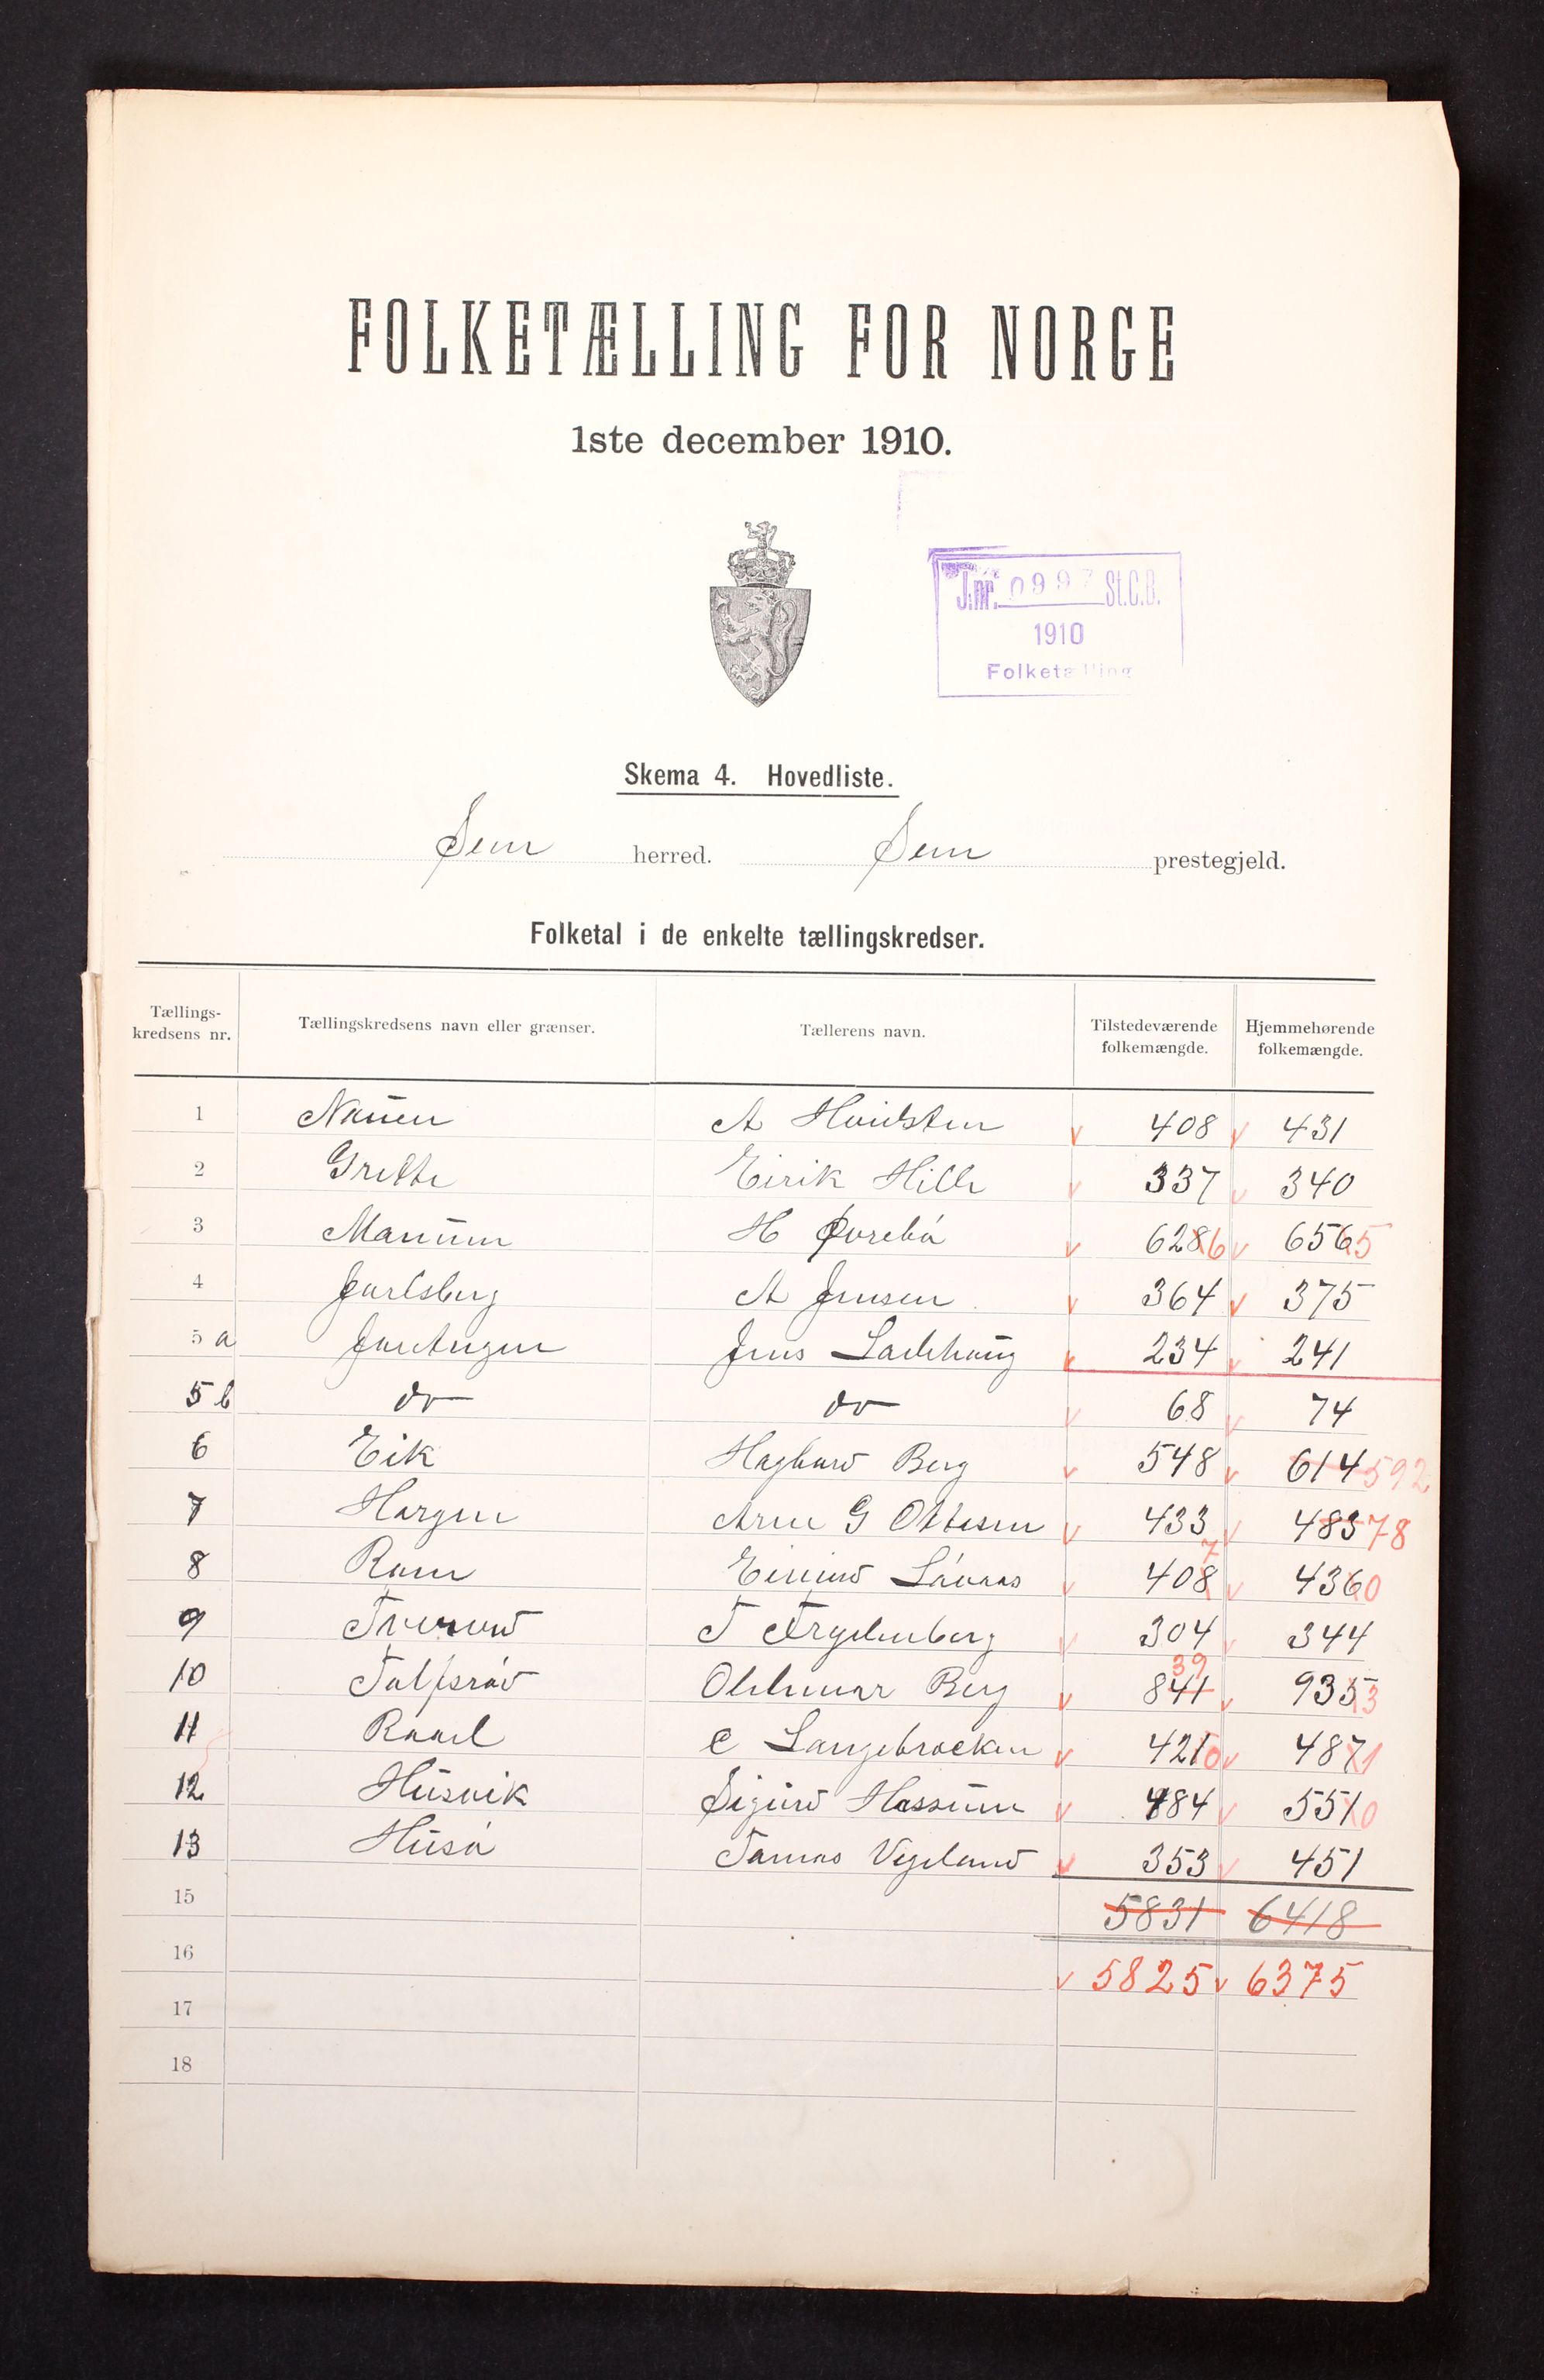 FOLKETÆLLING FOR NORGE
1ste december 1910.
J.nr. 0997 St.C.B.
1910
Folketælling
Skema 4. Hovedliste.
Sem herred. Sem prestegjeld.
Folketal i de enkelte tællingskredser.
Tællings-kredsens nr. Tællingskredsens navn eller grænser. Tællerens navn. Tilstedeværende folkemængde. Hjemmehørende folkemængde.
1 Nauen A Hvidsten 408 431
2 Grette Eirik Hille 337 340
3 Manum H Øvrebö 6286 6565
4 Jarlsberg A Jensen 364 375
5 a Jareteigen Jens Ladehaug 234 241
5 b do do 68 74
6 Eik Hagbard Berg 548 614 592
7 Hargen Arne G Ottesen 433 483 78
8 Ram Eivind 408 7 4360
9 T 304 344
10 Tolfsröd Oldemar Berg 841 39 9353
11 Rakel C Langebræcken 4210 4871
12 Husvik Sigurd Hassum 484 5510
13 Husö Tomas Vegeland 353 451
15 5831 6418
16 5825 6375
17
18